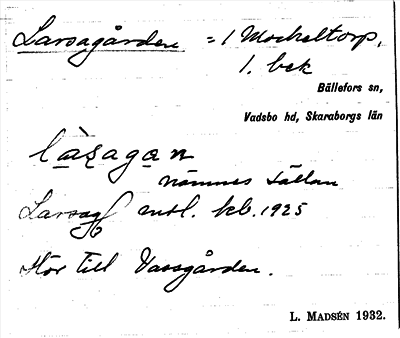 Larsagården = 1 Mocketorp,
1. bck
Bällefors sn,
Vadsbo hd, Skaraborgs län
làṣagan
nämnes sällan
Larsag mtl. kb. 1925
Hör till Vassgården.
L. MADSÉN 1932.